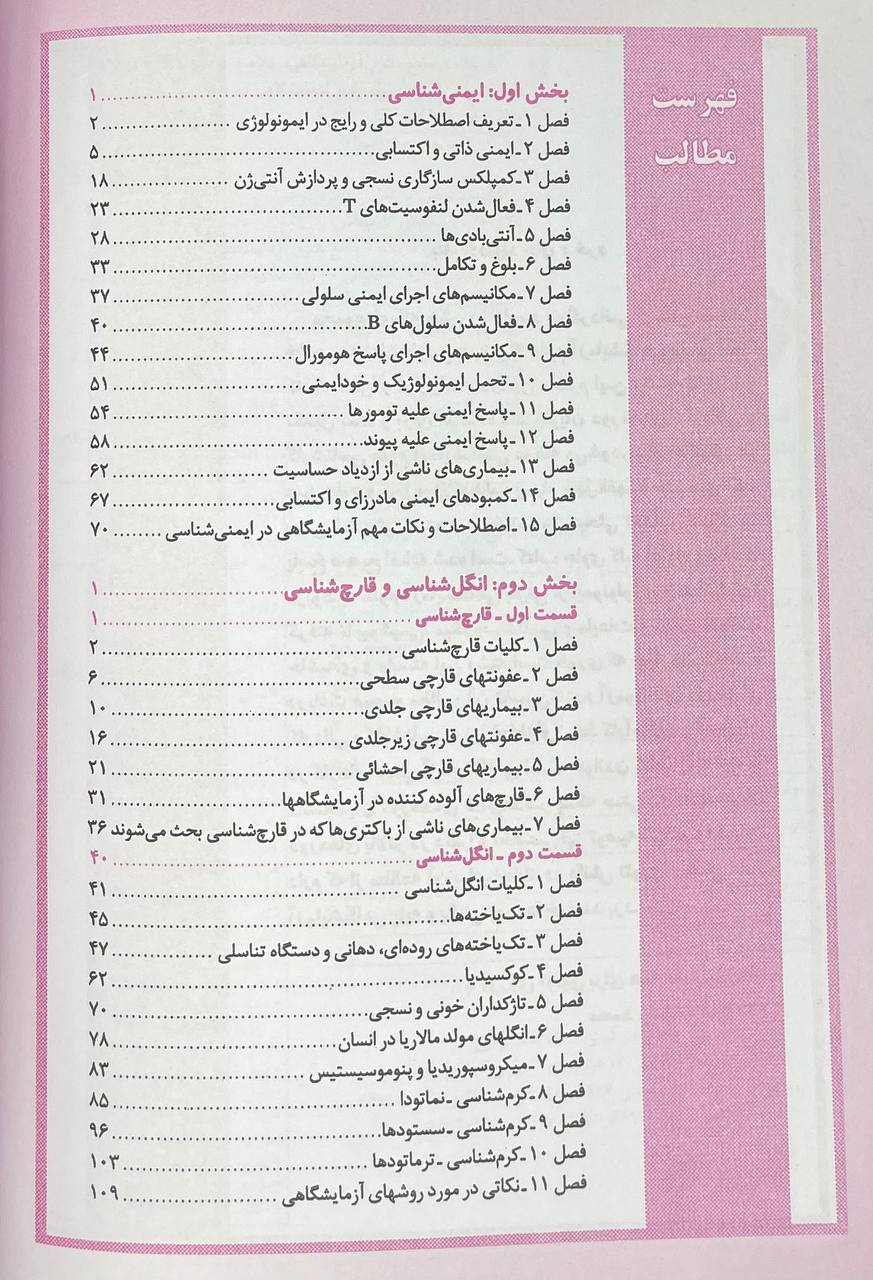 فهرست
مطالب
بخش اول: ایمنی‌شناسی ۱
فصل ۱ـ تعریف اصطلاحات کلی و رایج در ایمونولوژی ۲
فصل ۲ـ ایمنی ذاتی و اکتسابی ۵
فصل ۳ـ کمپلکس سازگاری نسجی و پردازش آنتی‌ژن ۱۸
فصل ۴ـ فعال‌شدن لنفوسیت‌های T ۲۳
فصل ۵ـ آنتی‌بادی‌ها ۲۸
فصل ۶ـ بلوغ و تکامل ۳۳
فصل ۷ـ مکانیسم‌های اجرای ایمنی سلولی ۳۷
فصل ۸ـ فعال‌شدن سلول‌های B ۴۰
فصل ۹ـ مکانیسم‌های اجرای پاسخ هومورال ۴۴
فصل ۱۰ـ تحمل ایمونولوژیک و خودایمنی ۵۱
فصل ۱۱ـ پاسخ ایمنی علیه تومورها ۵۴
فصل ۱۲ـ پاسخ ایمنی علیه پیوند ۵۸
فصل ۱۳ـ بیماری‌های ناشی از ازدیاد حساسیت ۶۲
فصل ۱۴ـ کمبودهای ایمنی مادرزای و اکتسابی ۶۷
فصل ۱۵ـ اصطلاحات و نکات مهم آزمایشگاهی در ایمنی‌شناسی ۷۰
بخش دوم: انگل‌شناسی و قارچ‌شناسی ۱
قسمت اول ـ قارچ‌شناسی ۱
فصل ۱ـ کلیات قارچ‌شناسی ۲
فصل ۲ـ عفونتهای قارچی سطحی ۶
فصل ۳ـ بیماریهای قارچی جلدی ۱۰
فصل ۴ـ عفونتهای قارچی زیرجلدی ۱۶
فصل ۵ـ بیماریهای قارچی احشائی ۲۱
فصل ۶ـ قارچ‌های آلوده کننده در آزمایشگاهها ۳۱
فصل ۷ـ بیماری‌های ناشی از باکتری‌ها که در قارچ‌شناسی بحث می‌شوند ۳۶
قسمت دوم ـ انگل‌شناسی ۴۰
فصل ۱ـ کلیات انگل‌شناسی ۴۱
فصل ۲ـ تک‌یاخته‌ها ۴۵
فصل ۳ـ تک‌یاخته‌های روده‌ای، دهانی و دستگاه تناسلی ۴۷
فصل ۴ـ کوکسیدیا ۶۲
فصل ۵ـ تاژکداران خونی و نسجی ۷۰
فصل ۶ـ انگلهای مولد مالاریا در انسان ۷۸
فصل ۷ـ میکروسپوریدیا و پنوموسیستیس ۸۳
فصل ۸ـ کرم‌شناسی ـ نماتودا ۸۵
فصل ۹ـ کرم‌شناسی ـ سستودها ۹۶
فصل ۱۰ـ کرم‌شناسی ـ ترماتودها ۱۰۳
فصل ۱۱ـ نکاتی در مورد روشهای آزمایشگاهی ۱۰۹